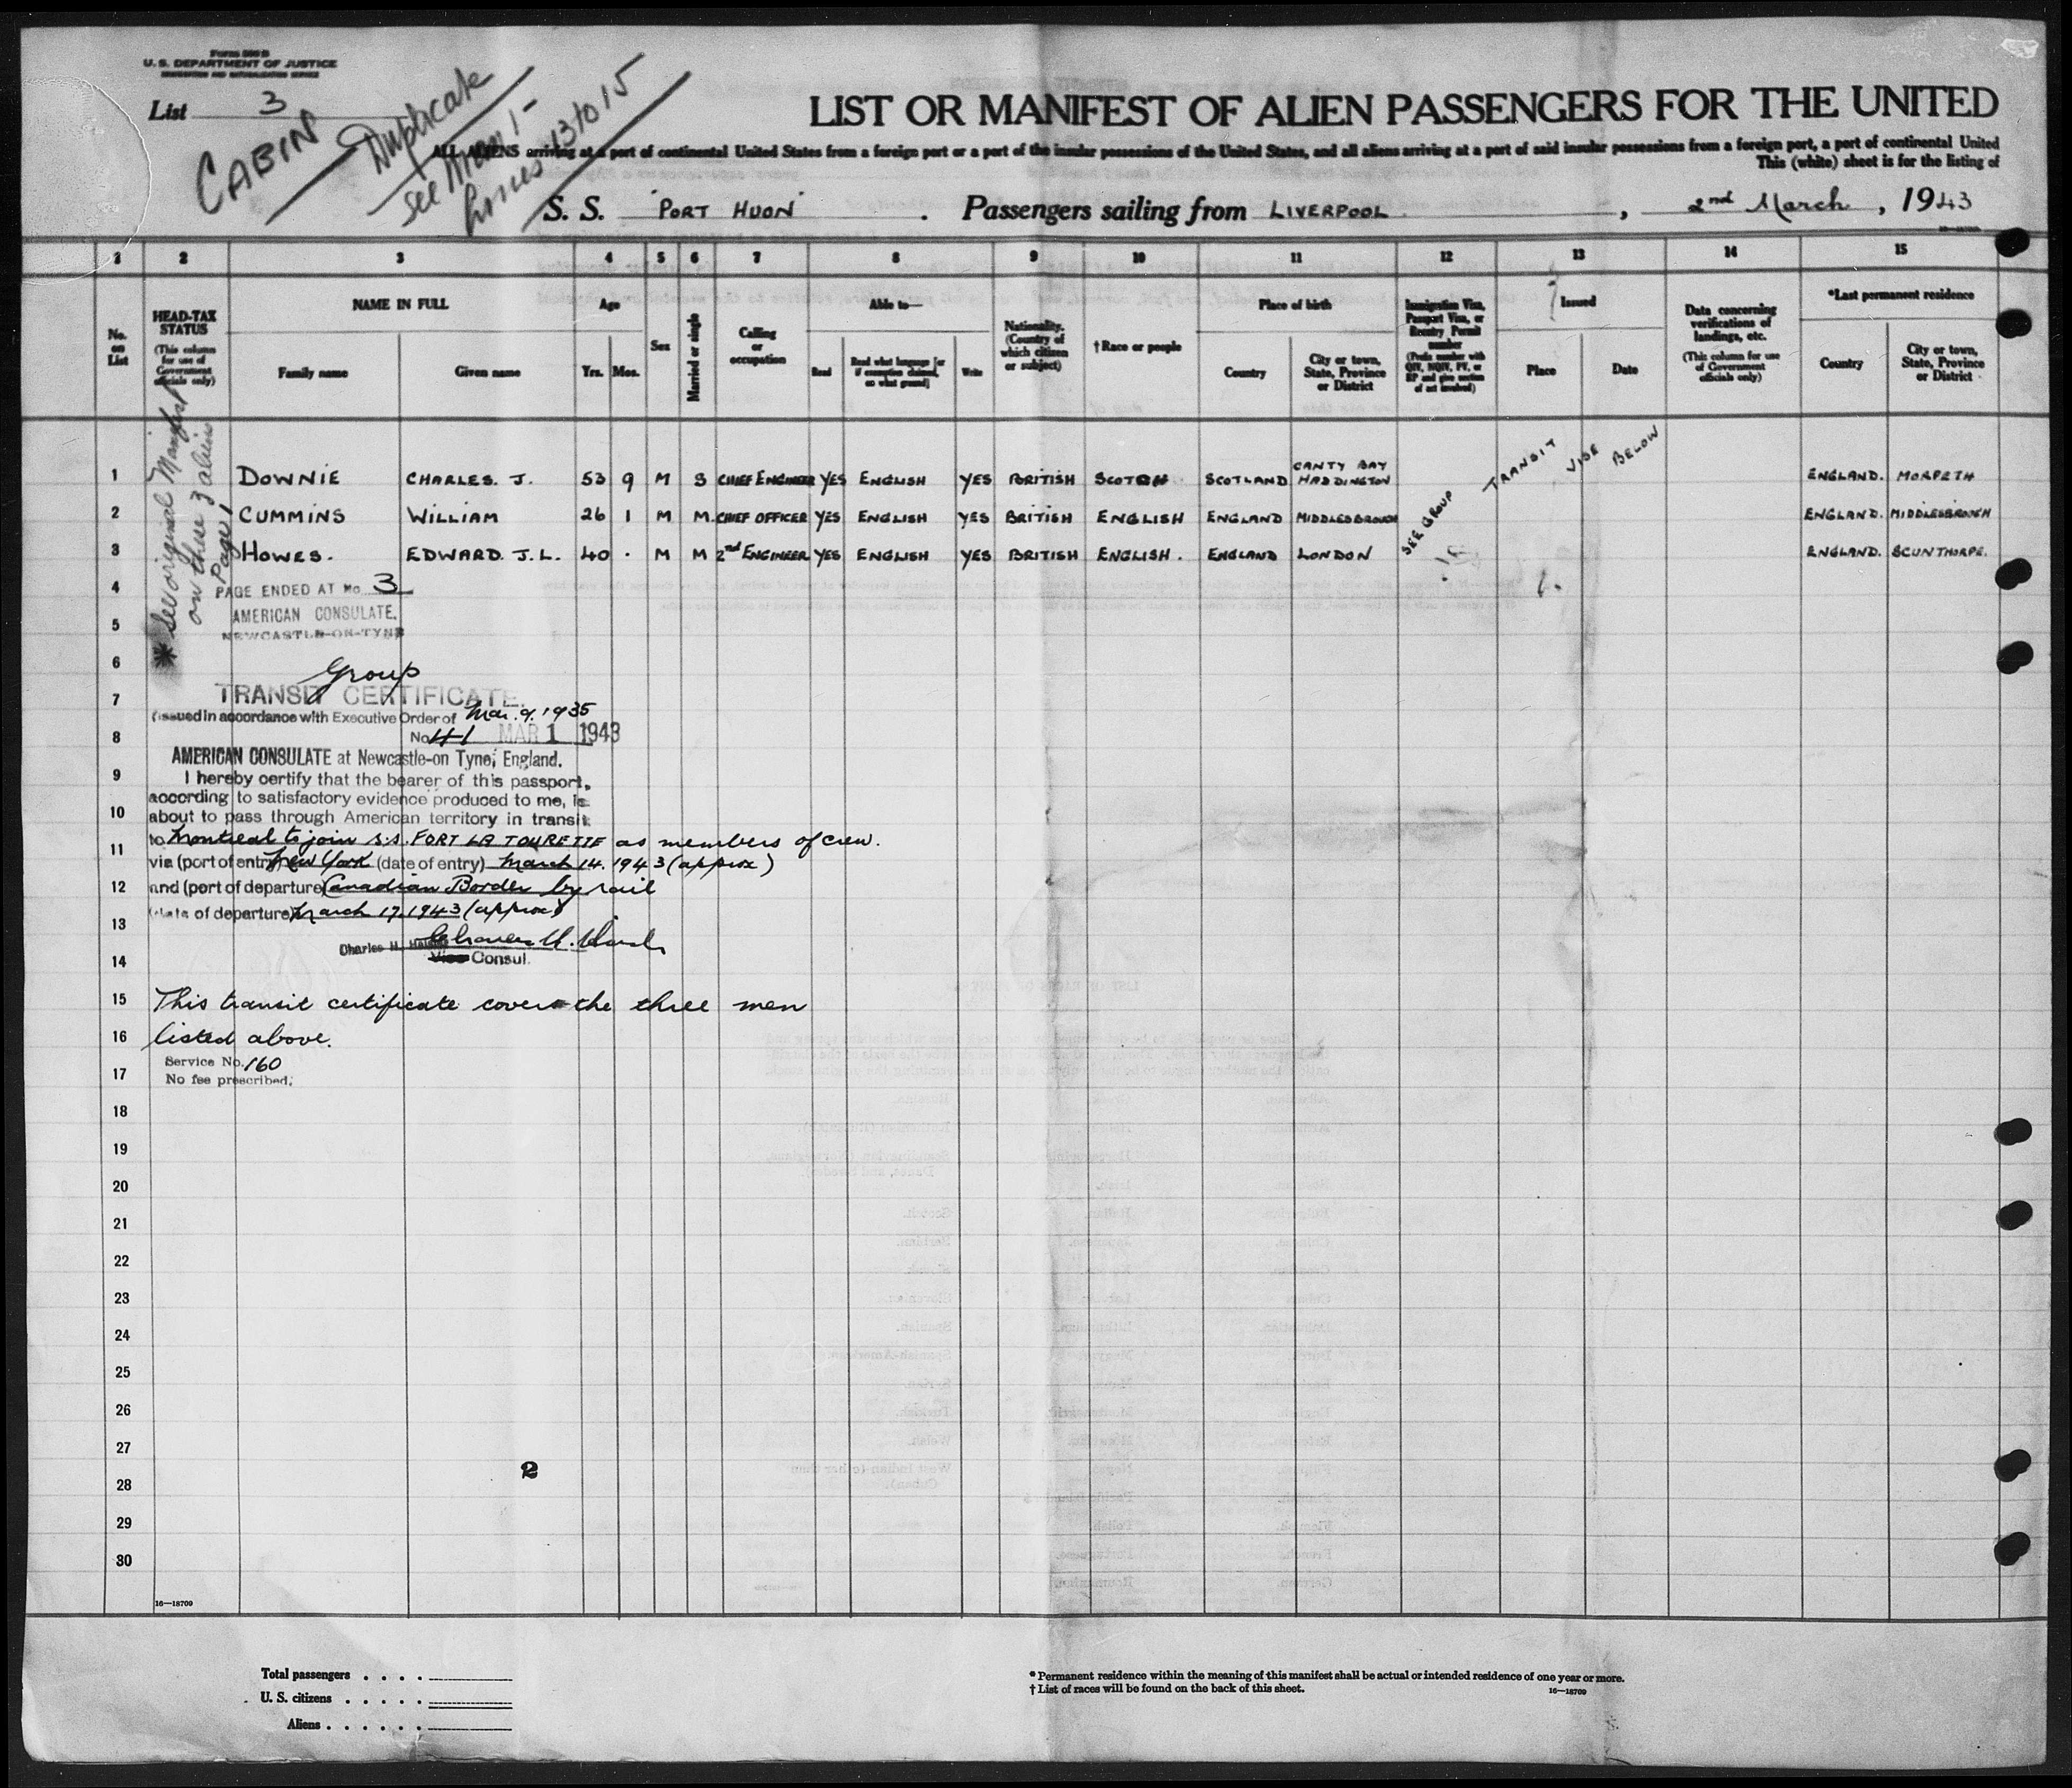 Form 500 B
U. S. DEPARTMENT OF JUSTICE
IMMIGRATION AND NATURALIZATION SERVICE
List 3
CABIN
Duplicate
See Man 1-
Lines 13 to 15
LIST OR MANIFEST OF ALIEN PASSENGERS FOR THE UNITED
ALL ALIENS arriving at a port of continental United States from a foreign port or a port of the insular possessions of the United States, and all aliens arriving at a port of said insular possessions from a foreign port, a port of continental United
This (white) sheet is for the listing of
S. S. "PORT HUON". Passengers sailing from LIVERPOOL, 2nd March, 1943
1 2 3 4 5 6 7 8 9 10 11 12 13 14 15
No. on List
HEAD-TAX STATUS
(This column for use of Government officials only)
NAME IN FULL
Family name
Given name
Age
Yrs. Mos.
Sex
Married or single
Calling or occupation
Able to—
Read
Read what language (or if exemption claimed, on what ground)
Write
Nationality. (Country of which citizen or subject)
† Race or people
Place of birth
Country
City or town, State, Province or District
Immigration Visa, Passport Visa, or Reentry Permit number
(Prefix number with QIV, NQIV, PV, or RP and give section of act involved)
Issued
Place
Date
Data concerning verifications of landings, etc.
(This column for use of Government officials only)
*Last permanent residence
Country
City or town, State, Province or District
1 DOWNIE CHARLES. J. 53 9 M S CHIEF ENGINEER YES ENGLISH YES BRITISH SCOTCH SCOTLAND CANTY BAY HADDINGTON ENGLAND. MORPETH
2 CUMMINS WILLIAM 26 1 M M. CHIEF OFFICER YES ENGLISH YES BRITISH ENGLISH ENGLAND MIDDLESBROUGH ENGLAND. MIDDLESBROUGH
3 HOWES. EDWARD. J. L. 40 · M M 2nd ENGINEER YES ENGLISH YES BRITISH ENGLISH. ENGLAND LONDON ENGLAND. SCUNTHORPE.
SEE GROUP
TRANSIT VISE BELOW
* See original Manifest
on these 3 aliens
Page 1
4 PAGE ENDED AT No 3
AMERICAN CONSULATE.
5 NEWCASTLE-ON-TYNE
6 Group
7 TRANSIT CERTIFICATE.
(Issued in accordance with Executive Order of Mar. 9. 1935
8 No. 41 MAR 1 1943
AMERICAN CONSULATE at Newcastle-on Tyne, England.
9 I hereby certify that the bearer of this passport,
according to satisfactory evidence produced to me, is
10 about to pass through American territory in transit
to Montreal to join s.s. FORT LA TOURETTE as members of crew.
11 via (port of entry) New York (date of entry) March 14. 1943 (approx)
12 and (port of departure) Canadian Border by rail
(date of departure) March 17. 1943 (approx)
13
Charles H.
14 Vice Consul.
15 This transit certificate covers the three men
16 listed above.
Service No. 160
17 No fee prescribed.
18
19
20
21
22
23
24
25
26
27
2
28
29
30
16—18709
Total passengers . . . .
U. S. citizens . . . . .
Aliens . . . . . .
* Permanent residence within the meaning of this manifest shall be actual or intended residence of one year or more.
† List of races will be found on the back of this sheet.
16—18709